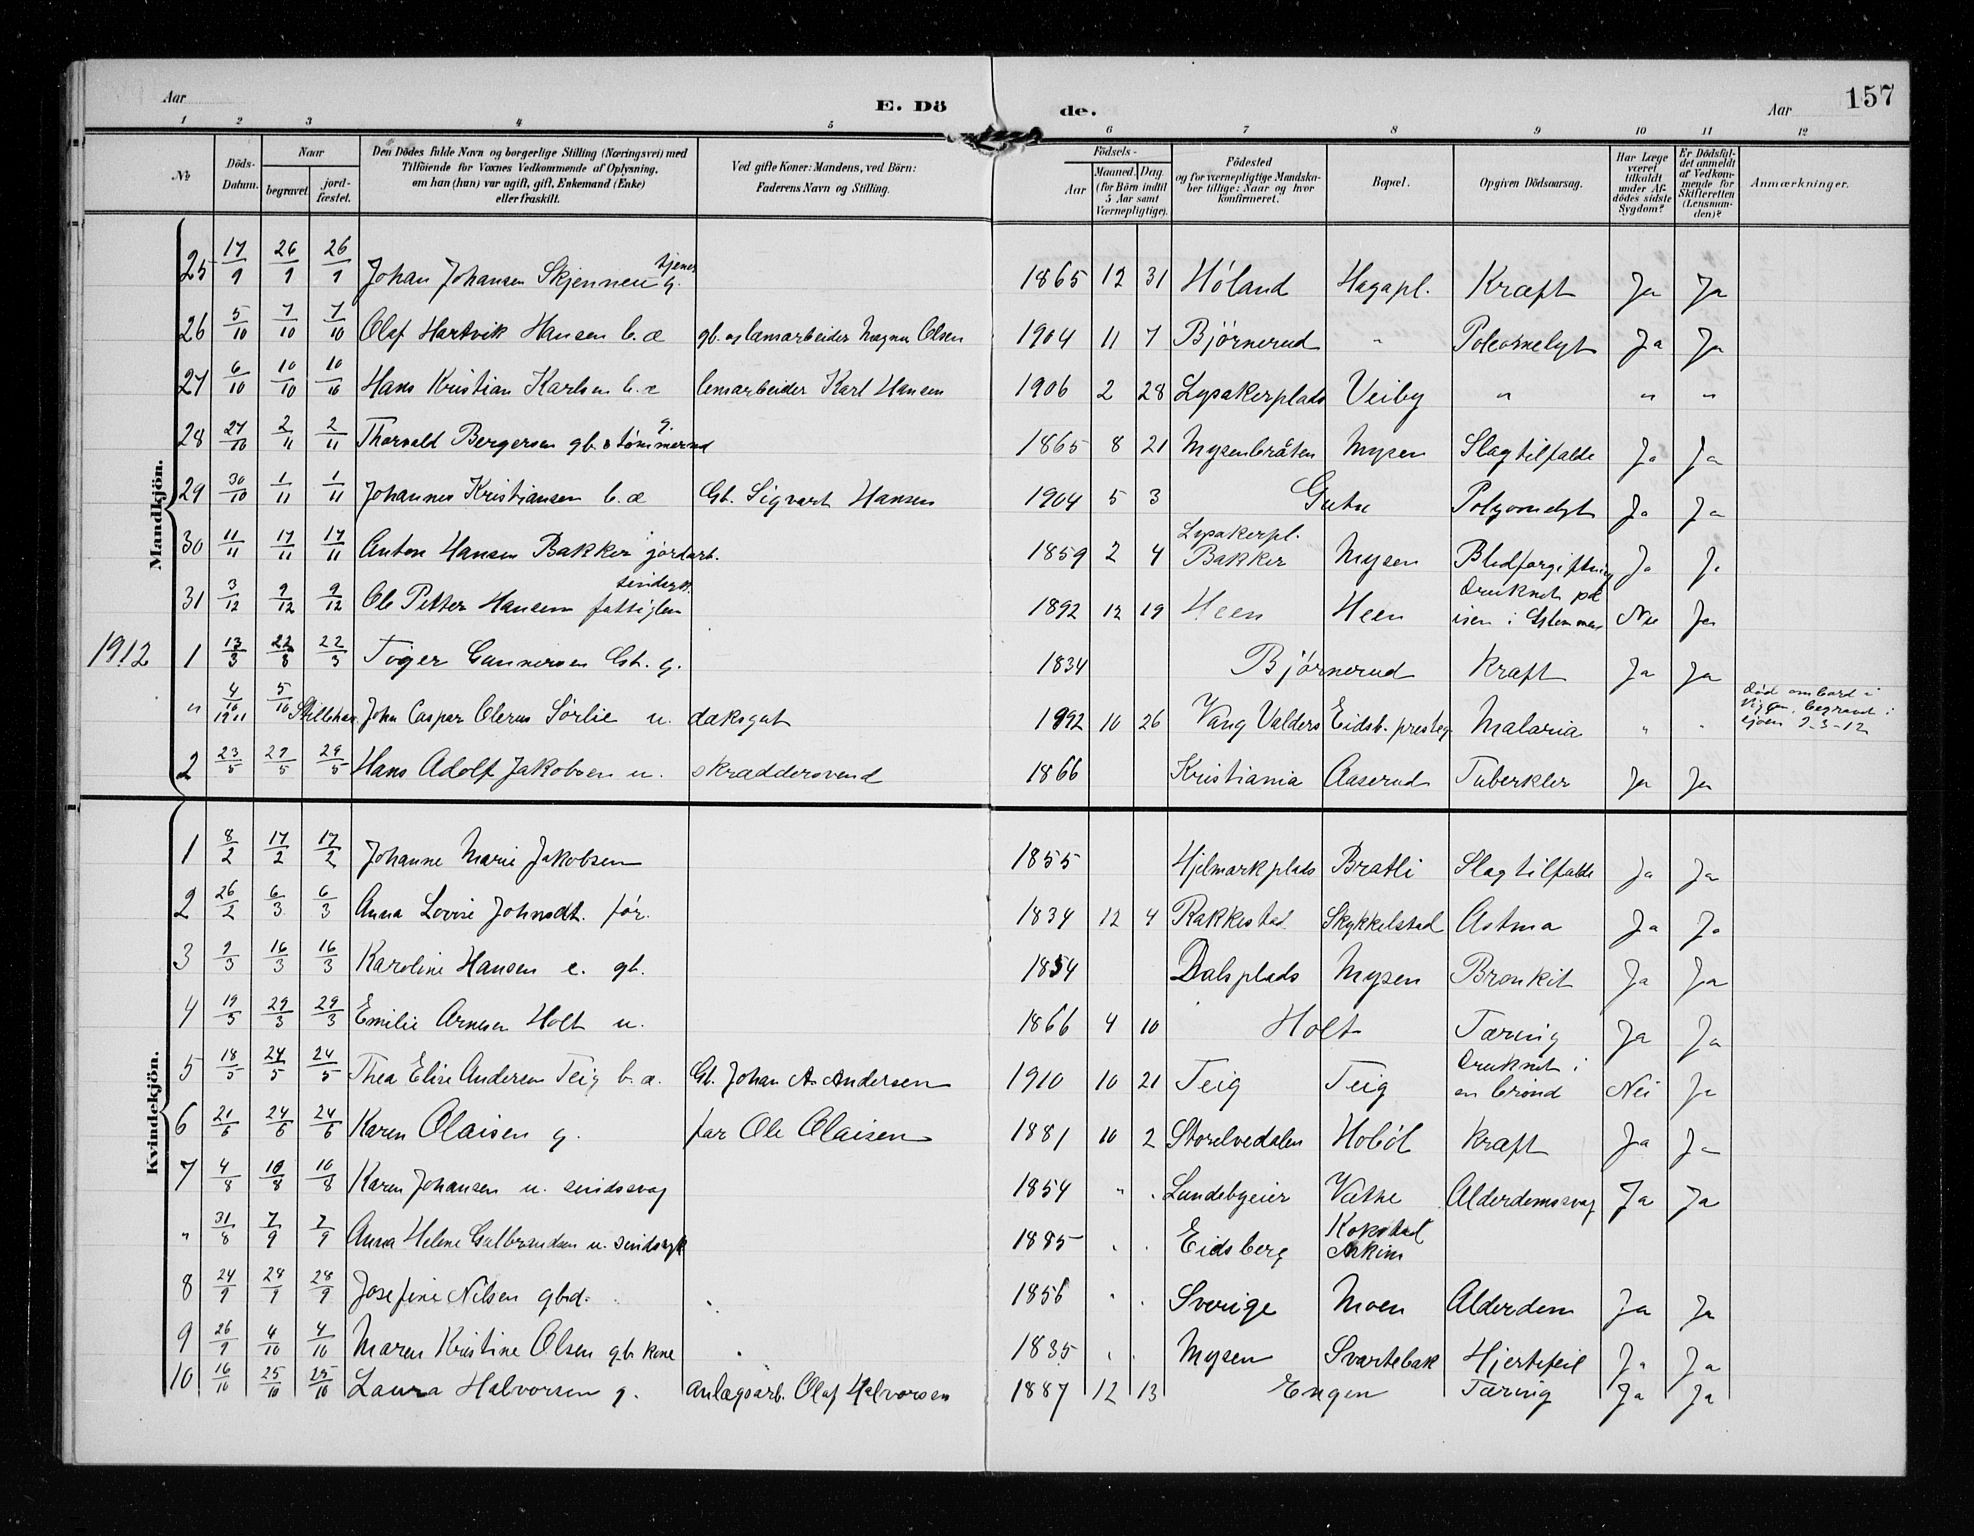 Aar E. Dö de. Aar 157
1 2 3 4 5 6 7 8 9 10 11 12
No
Döds-Datum.
Naar
begravet.
jord-fæstet.
Den Dödes fulde Navn og borgerlige Stilling (Næringsvei) med
Tilföiende for Voxnes Vedkommende af Oplysning,
om han (hun) var ugift, gift, Enkemand (Enke)
eller fraskilt.
Ved gifte Koner: Mandens, ved Börn:
Faderens Navn og Stilling.
Födsels-
Aar
Maaned. Dag.
(for Börn indtil
5 Aar samt
Værnepligtige).
Födested
og for værnepligtige Mandska-
ber tillige: Naar og hvor
konfirmeret.
Bopæl.
Opgiven Dödsaarsag.
Har Læge
været
tilkaldt
under Af-
dödes sidste
Sygdom?
Er Dödsfal-
det anmeldt
af Vedkom-
mende for
Skifteretten
(Lensman-
den)?
Anmærkninger.
Mandkjön.
25 17/9 26/9 26/9 Johan Johansen Skjennen tjener g. 1865 12 31 Höland Hagapl. Kræft Ja Ja
26 5/10 7/10 7/10 Olaf Hartvik Hansen b. æ gb. og lemarbeider Magnus Olsen 1904 11 7 Björnerud " Ja Ja
27 6/10 10/10 10/10 Hans Kristian Karlsen b. æ lemarbeider Karl Hansen 1906 2 28 Lysakerplads Veiby " " "
28 27/10 2/11 2/11 Thorvald Bergersen gb. & tömmermd g. 1865 8 21 Mysenbråten Mysen Slagtilfælde Ja Ja
29 30/10 1/11 1/11 Johannes Kristiansen b. æ Gb. Sigvart Hansen 1904 5 3 Gutu Ja Ja
30 11/11 17/11 17/11 Anton Hansen Bakker jordarb. 1859 2 4 Lysakerpl. Bakker Mysen Blodforgiftning Ja Ja
31 3/12 9/12 9/12 Ole Petter Hansen fattiglem sindsyk. 1892 12 19 Heen Heen Druknet på isen i Glommen Nei Ja
1912 1 13/3 22/3 22/3 Töger Gunnersen Gb. g. 1834 Björnerud Kræft Ja Ja
" 4/10 1911 5/10 Stillehav. John Caspar Olerus Sörlie u. dæksgut 1892 10 26 Vang Valders Eidsb. presteg Malaria " " död ombord i begravet i sjöen 9-3-12
2 23/5 29/5 29/5 Hans Adolf Jakobsen u. skræddersvend 1866 Kristiania Aaserud Tuberkler Ja Ja
Kvindekjön.
1 8/2 17/2 17/2 Johanne Marie Jakobsen 1855 Hjelmarkplads Bratli Slagtilfælde Ja Ja
2 26/2 6/3 6/3 Anna Lovise Johnsdt. för. 1834 12 4 Rakkestad Skykkelstad Astma Ja Ja
3 9/3 16/3 16/3 Karoline Hansen e. gb. 1854 Dalsplads Mysen Bronkit Ja Ja
4 19/3 29/3 29/3 Emilie Arnesen Holt u. 1866 4 10 Holt Tæring Ja Ja
5 18/5 24/5 24/5 Thea Elise Andersen Teig b. æ. Gb. Johan A. Andersen 1910 10 21 Teig Teig Druknet i en brönd Nei Ja
6 21/6 24/6 24/6 Karen Olaisen g. far Ole Olaisen 1881 10 2 Storelvedalen Hoböl Kræft Ja Ja
7 4/8 10/8 10/8 Karen Johansen u. sindssvag 1854 " " Lundebyeier Vatne Alderdomssvag Ja Ja
" 31/8 7/9 7/9 Anna Helene Gulbrandsen u. sindssyk 1885 " " Eidsberg Kokstad Askim
8 24/9 28/9 28/9 Josefine Nilsen gbd. " 1856 " " Sverige Moen Alderdom Ja Ja
9 26/9 4/10 4/10 Maren Kristine Olsen gb. kone " 1835 " " Mysen Svartebæk Hjertefeil Ja Ja
10 16/10 25/10 25/10 Laura Halvorsen g. anlægsarb. Olaf Halvorsen 1887 12 13 Engen Tæring Ja Ja